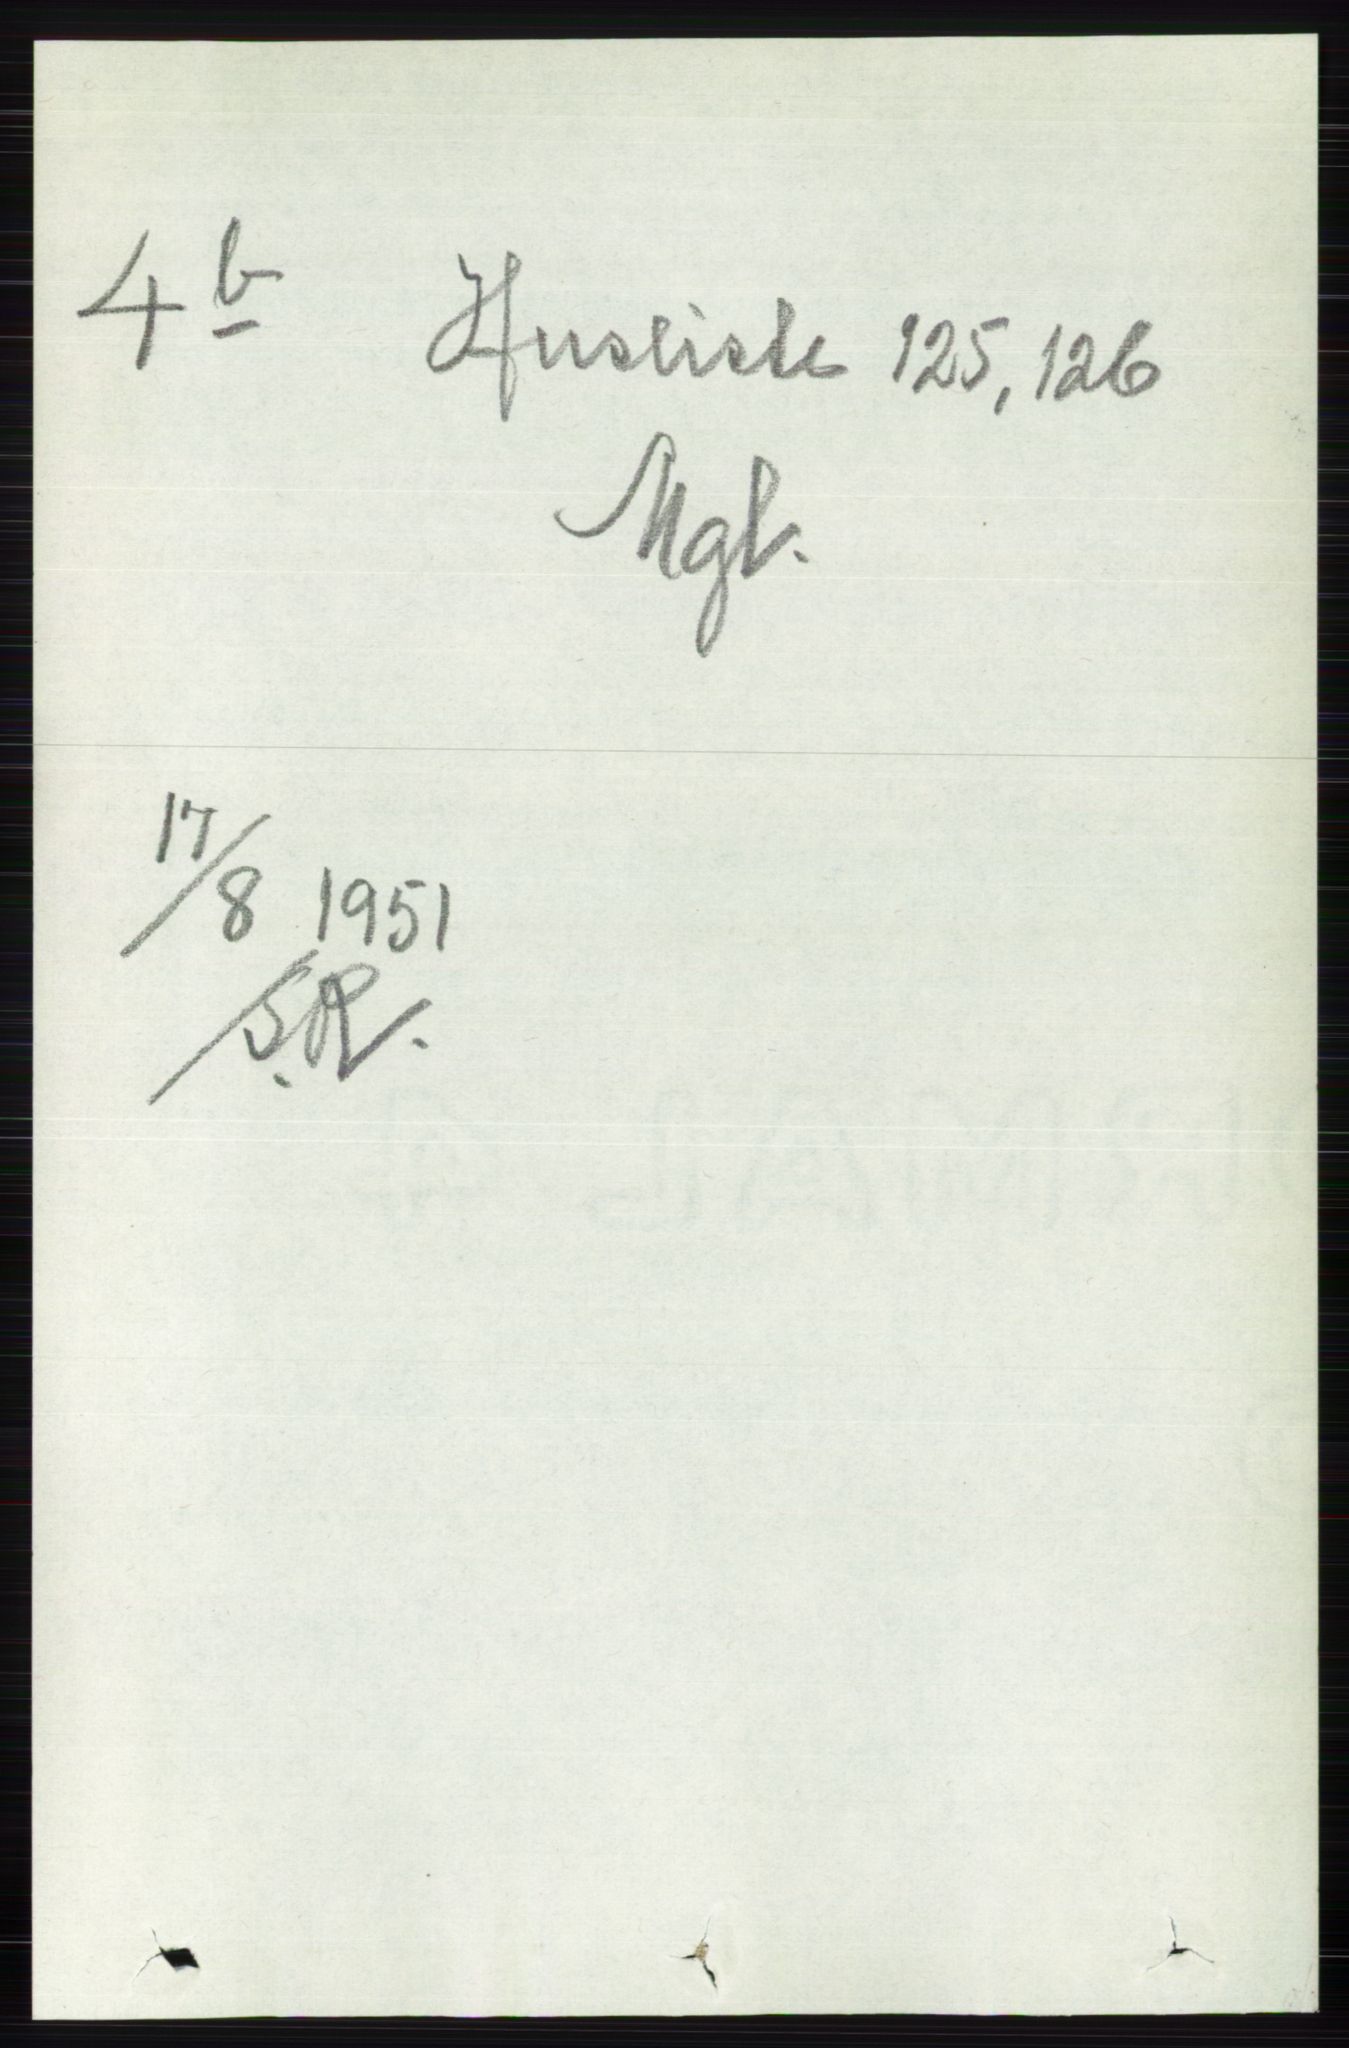 4b Husliste 125, 126
Mgl.
17/8 1951
S.R.